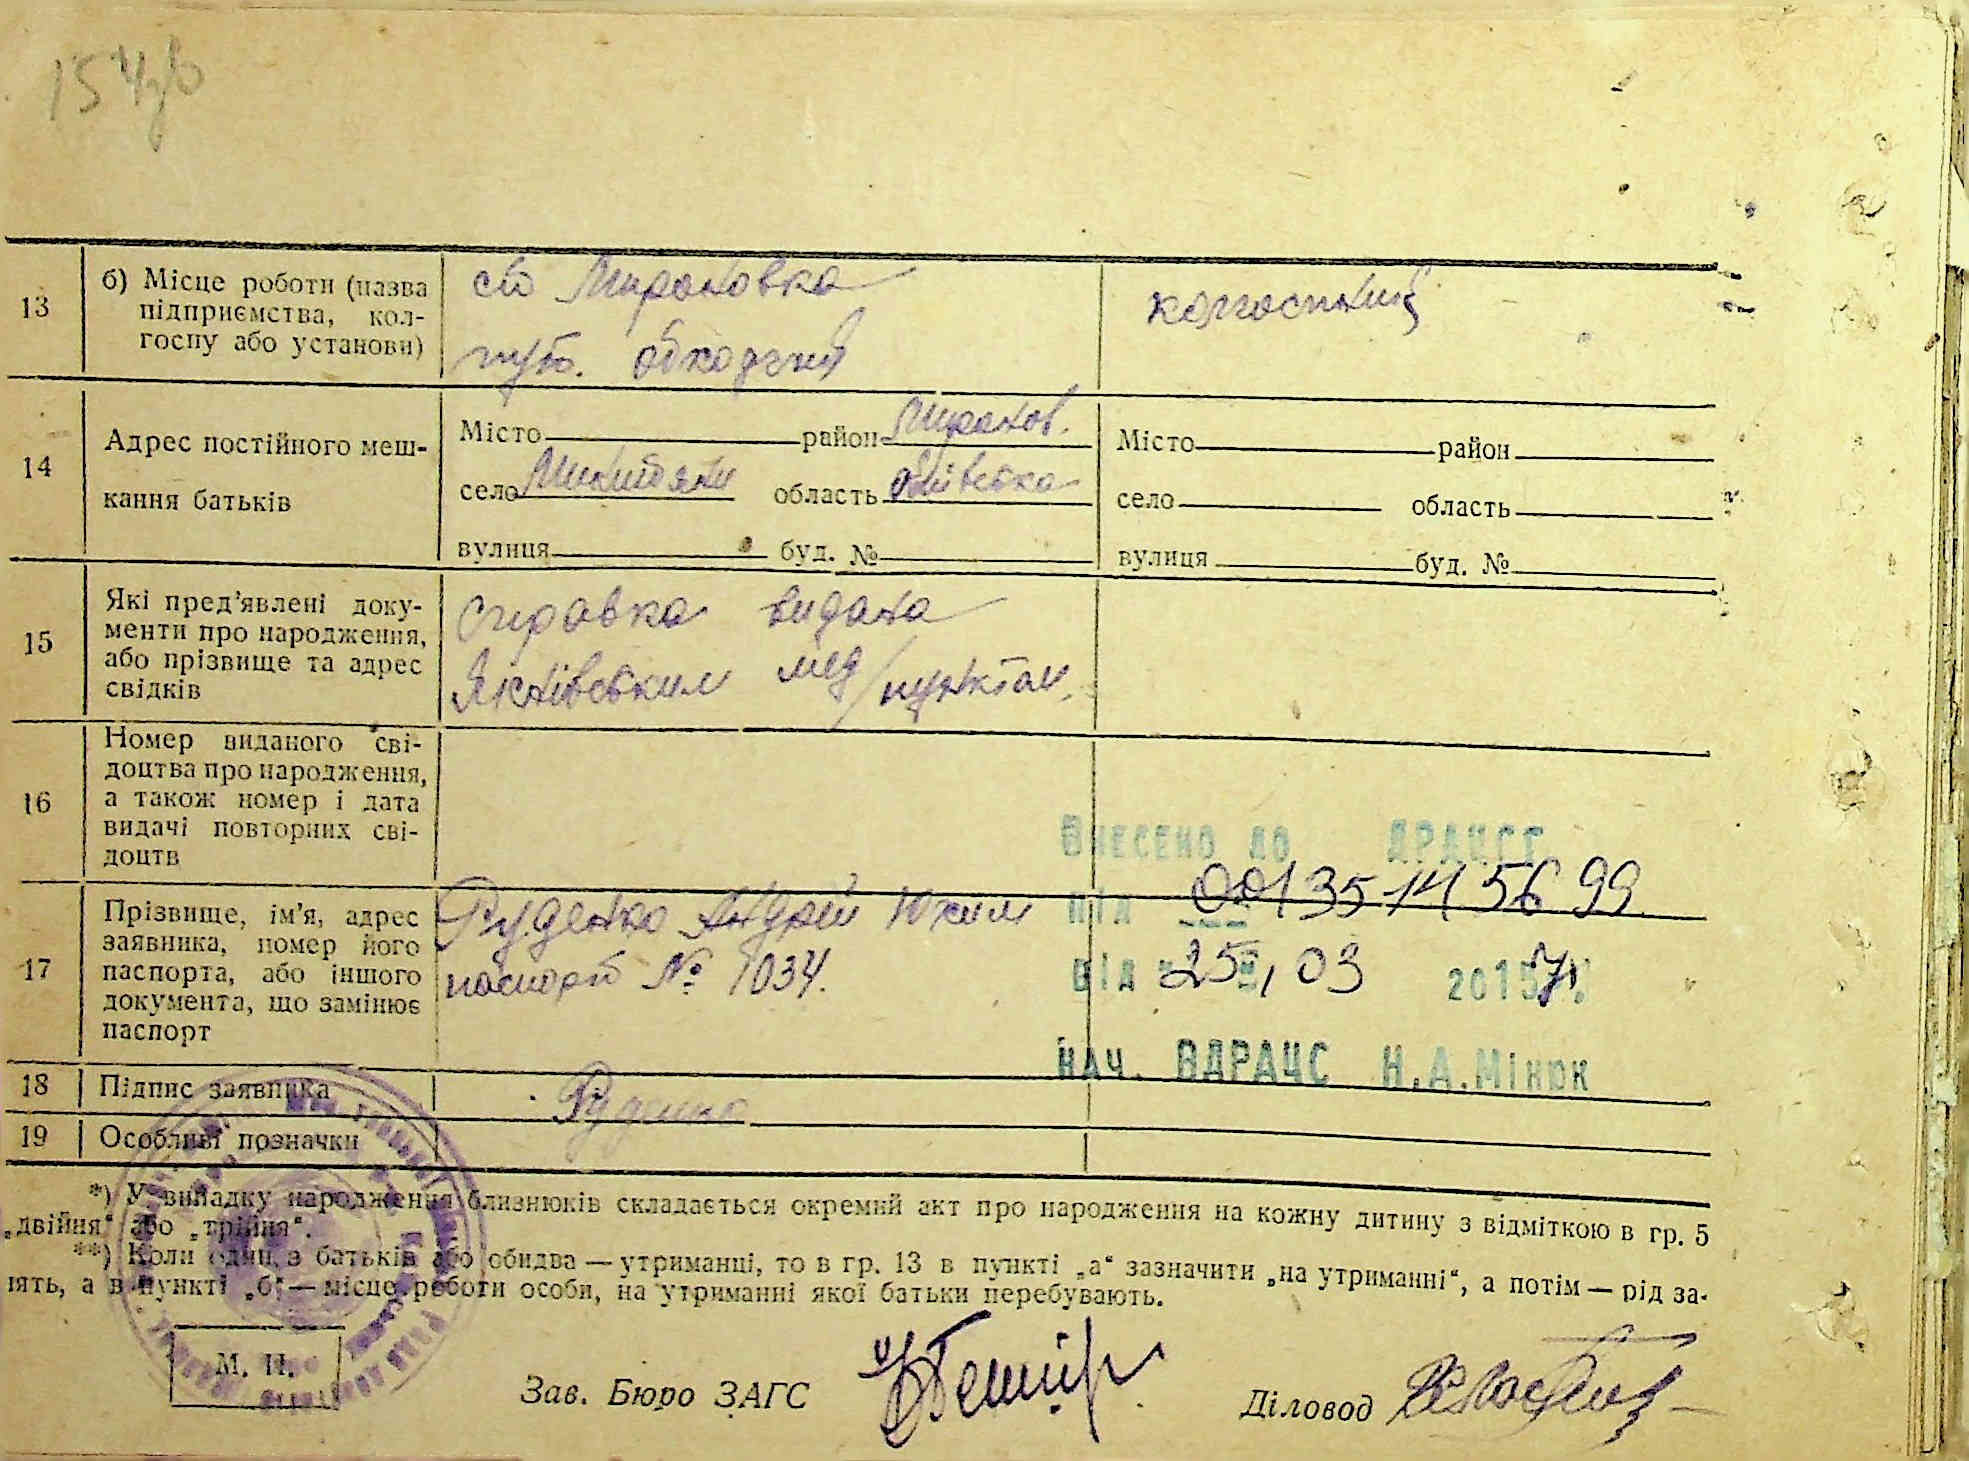 154зв
13
б) Місце роботи (назва
підприємства, кол-
госпу або установи)
ст Мироновка
пут. обходчий
колгоспниц
14
Адрес постійного меш-
кання батьків
Місто район Миронов.
село Микитяни область Київська
вулиця буд. №
Місто район
село область
вулиця буд. №
15
Які пред'явлені доку-
менти про народження,
або прізвище та адрес
свідків
Справка видана
мед/пунктом.
16
Номер виданого сві-
доцтва про народження,
а також номер і дата
видачі повторних сві-
доцтв
ВНЕСЕНО ДО ДРАЦСГ
17
Прізвище, ім'я, адрес
заявника, номер його
паспорта, або іншого
документа, що замінює
паспорт
Руденко Андрій Юхим
паспорт № 1034.
під 00135145699
від 25, 03 2017
НАЧ. ВДРАЦС Н.А.Мінюк
18 Підпис заявника Руденко
19 Особливі позначки
*) У випадку народження близнюків складається окремий акт про народження на кожну дитину з відміткою в гр. 5
„двійня“ або „трійня“.
**) Коли один з батьків або обидва — утриманці, то в гр. 13 в пункті „а“ зазначити „на утриманні“, а потім — рід за-
нять, а в пункті „б“ — місце роботи особи, на утриманні якої батьки перебувають.
М. П.
Зав. Бюро ЗАГС
Діловод